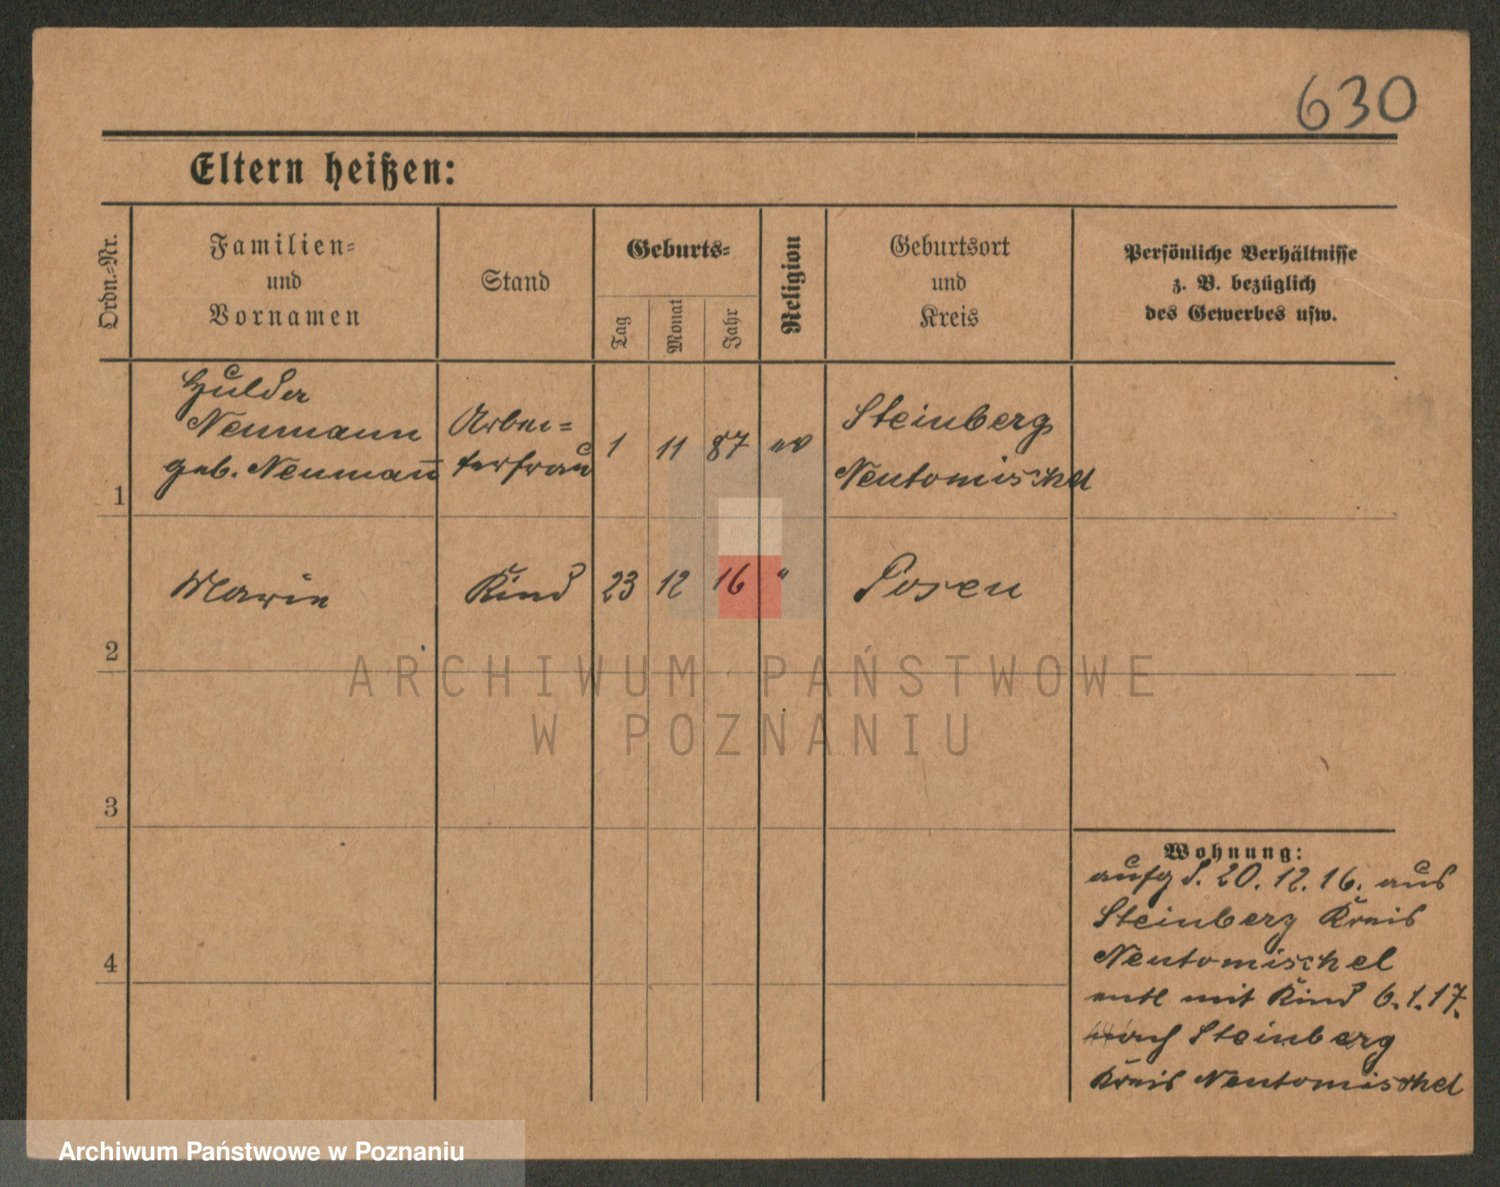 630
Eltern heißen:
Ordn.-Nr.
Familien-
und
Vornamen
Stand
Geburts-
Tag
Monat
Jahr
Religion
Geburtsort
und
Kreis
Persönliche Verhältnisse
z. B. bezüglich
des Gewerbes usw.
1
Hulda
Neumann
geb. Neumañ
Arbei=
terfrau
1
11
87
ev
Steinberg
Neutomischel
2
Marie
Kind
23
12
16
"
Posen
ARCHIWUM PAŃSTWOWE
W POZNANIU
3
4
Wohnung:
aufg d. 20.12.16. aus
Steinberg Kreis
Neutomischel
entl mit Kind 6.1.17.
nach Steinberg
Kreis Neutomischel
Archiwum Państwowe w Poznaniu